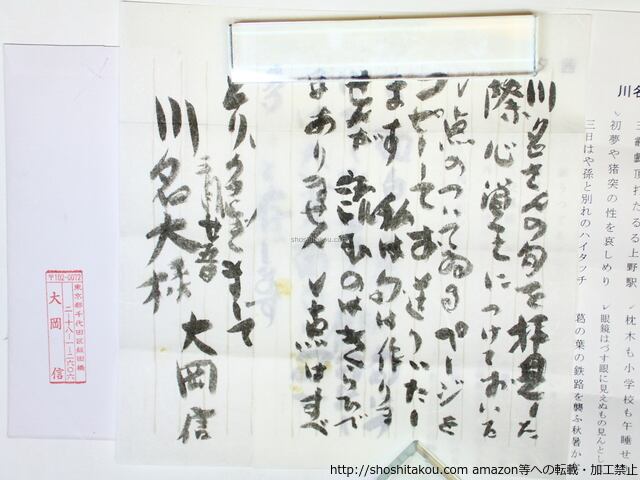 川名
三
頂打たるる上野駅
初夢や猪突の性を哀しめり
三日はや孫と別れのハイタッチ
枕木も小学校も午睡せ
眼鏡はづす眼に見えぬもの見んとし
葛の葉の鉄路を襲ふ秋暑か
川名さんの句を拝見した
際心覚えにつけておいた
レ点のついてゐるページを
コピーしてお送りいたし
ます 私は句は作りま
せんが 読むのはきらひで
はありません レ点はすべ
とりいそぎまして
大岡信
川名大様
〒102-0072
東京都千代田区飯田橋
二-十八-一-二六〇六
大岡 信
shoshitakou.com
http://shoshitakou.com amazon等への転載・加工禁止